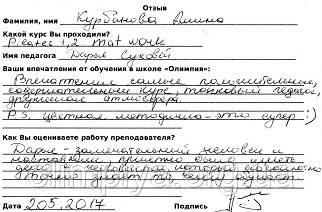 Отзыв
Фамилия, имя Курбанова Амина
Какой курс Вы проходили?
Pilates 1,2 mat work
Имя педагога Дарья Суховей
Ваши впечатления от обучения в школе «Олимпия»:
Впечатления самые положительные,
содержательный курс, толковый педагог,
дружеская атмосфера.
P.S. цветная методичка - это супер :)
Как Вы оцениваете работу преподавателя?
Дарья - замечательный человек и
наставник, приятно было иметь
дело с человеком, который
знает и умеет
Дата 2.05.2017 Подпись